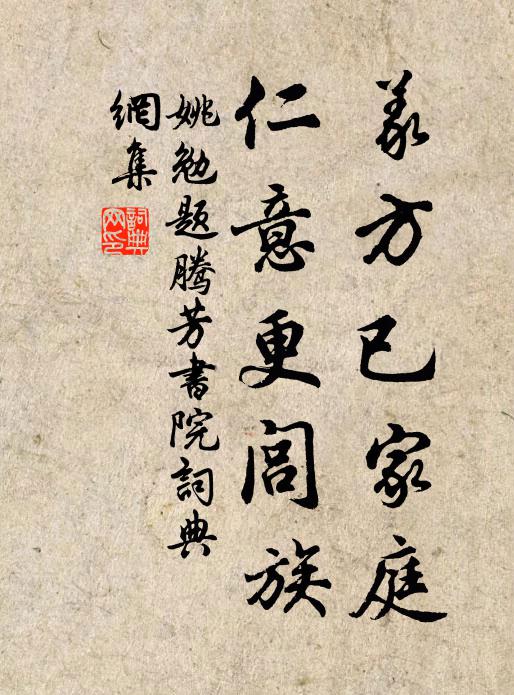 義方已家庭
仁意更閭族
姚勉題騰芳書院詞典
網集
詞典網印